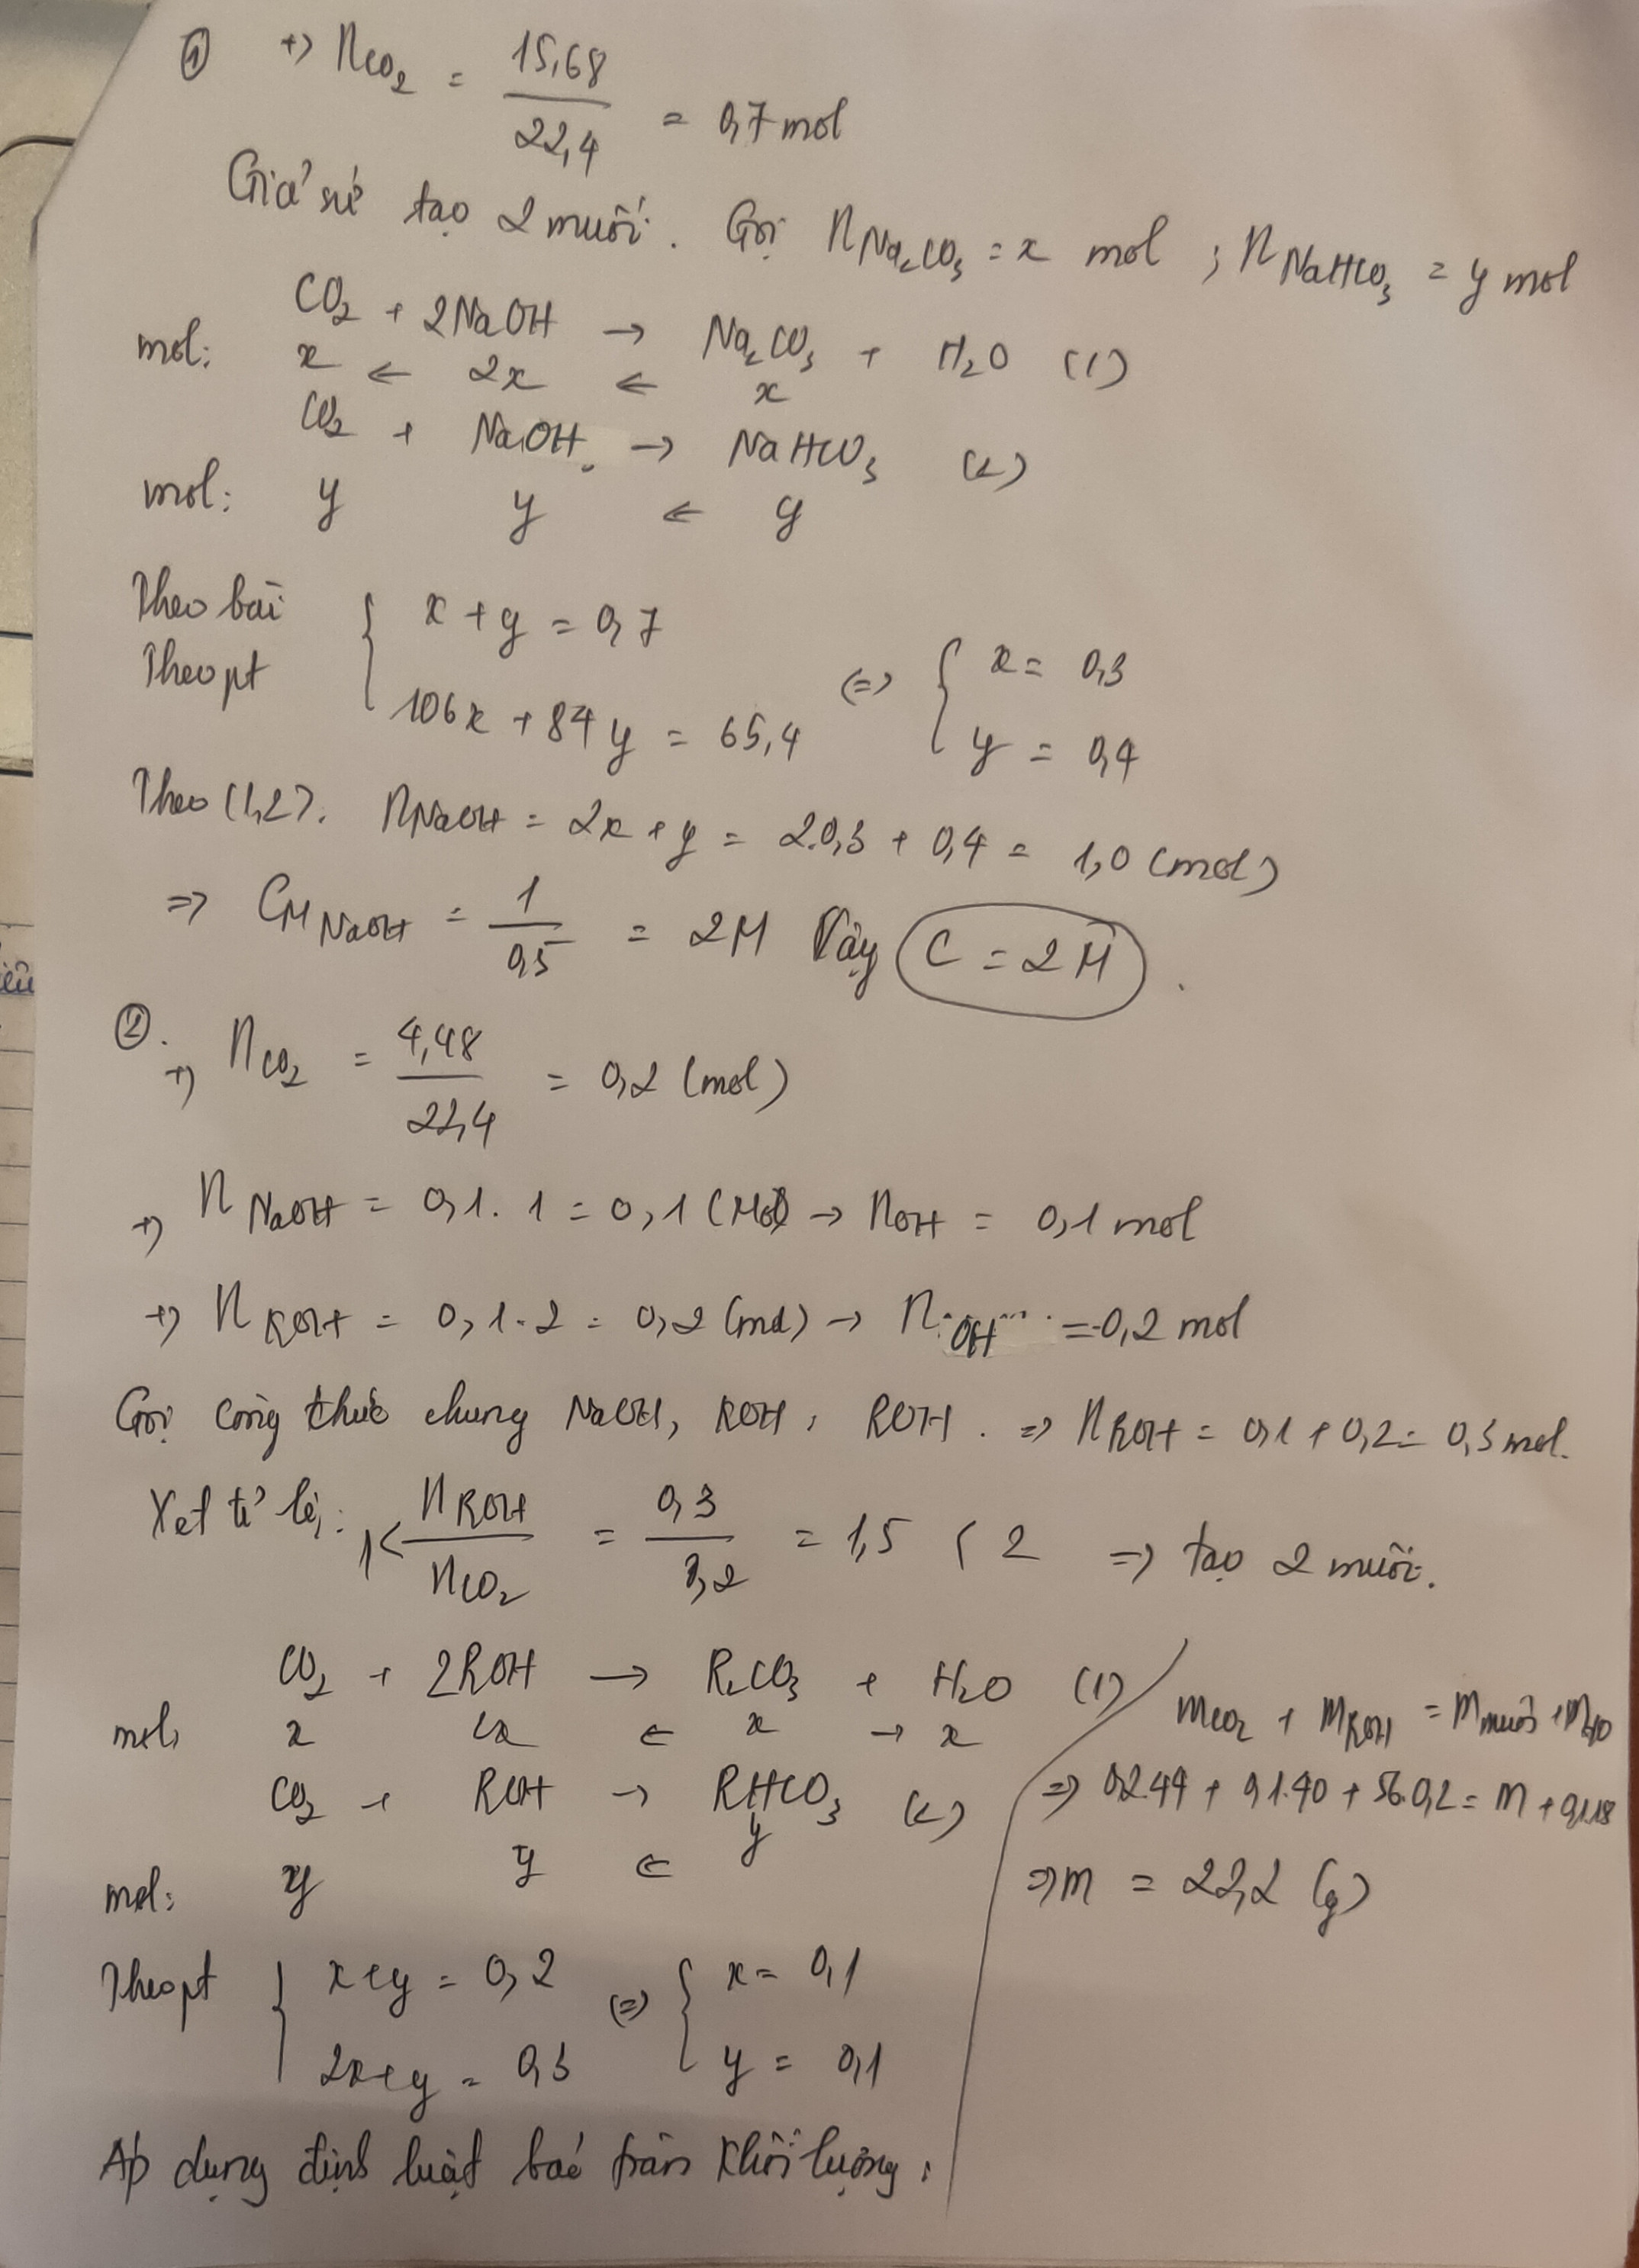 ① +) nCO₂ = 15,68 / 22,4 = 0,7 mol
Giả sử tạo 2 muối. Gọi nNa₂CO₃ = x mol ; nNaHCO₃ = y mol
CO₂ + 2NaOH → Na₂CO₃ + H₂O (1)
mol: x ← 2x ← x
CO₂ + NaOH → NaHCO₃ (2)
mol: y y ← y
Theo bài { x + y = 0,7
Theo pt { 106x + 84y = 65,4 <=> { x = 0,3
{ y = 0,4
Theo (1,2). nNaOH = 2x + y = 2.0,3 + 0,4 = 1,0 (mol)
=> CM NaOH = 1 / 0,5 = 2M Vậy C = 2M .
②. +) nCO₂ = 4,48 / 22,4 = 0,2 (mol)
+) nNaOH = 0,1 . 1 = 0,1 (Mol) → nOH = 0,1 mol
+) nKOH = 0,1 . 2 = 0,2 (mol) → nOH = 0,2 mol
Gọi công thức chung NaOH, KOH, ROH . => nROH = 0,1 + 0,2 = 0,3 mol.
Xét tỉ lệ: 1 < nROH / nCO₂ = 0,3 / 0,2 = 1,5 < 2 => tạo 2 muối.
CO₂ + 2ROH → R₂CO₃ + H₂O (1)
mol: x 2x ← x → x
CO₂ + ROH → RHCO₃ (2)
mol: y y ← y
Theo pt { x + y = 0,2 <=> { x = 0,1
{ 2x + y = 0,3 { y = 0,1
Áp dụng định luật bảo toàn khối lượng:
mCO₂ + mROH = mmuối + mH₂O
=> 0,2.44 + 0,1.40 + 56.0,2 = m + 0,1.18
=> m = 22,2 (g)